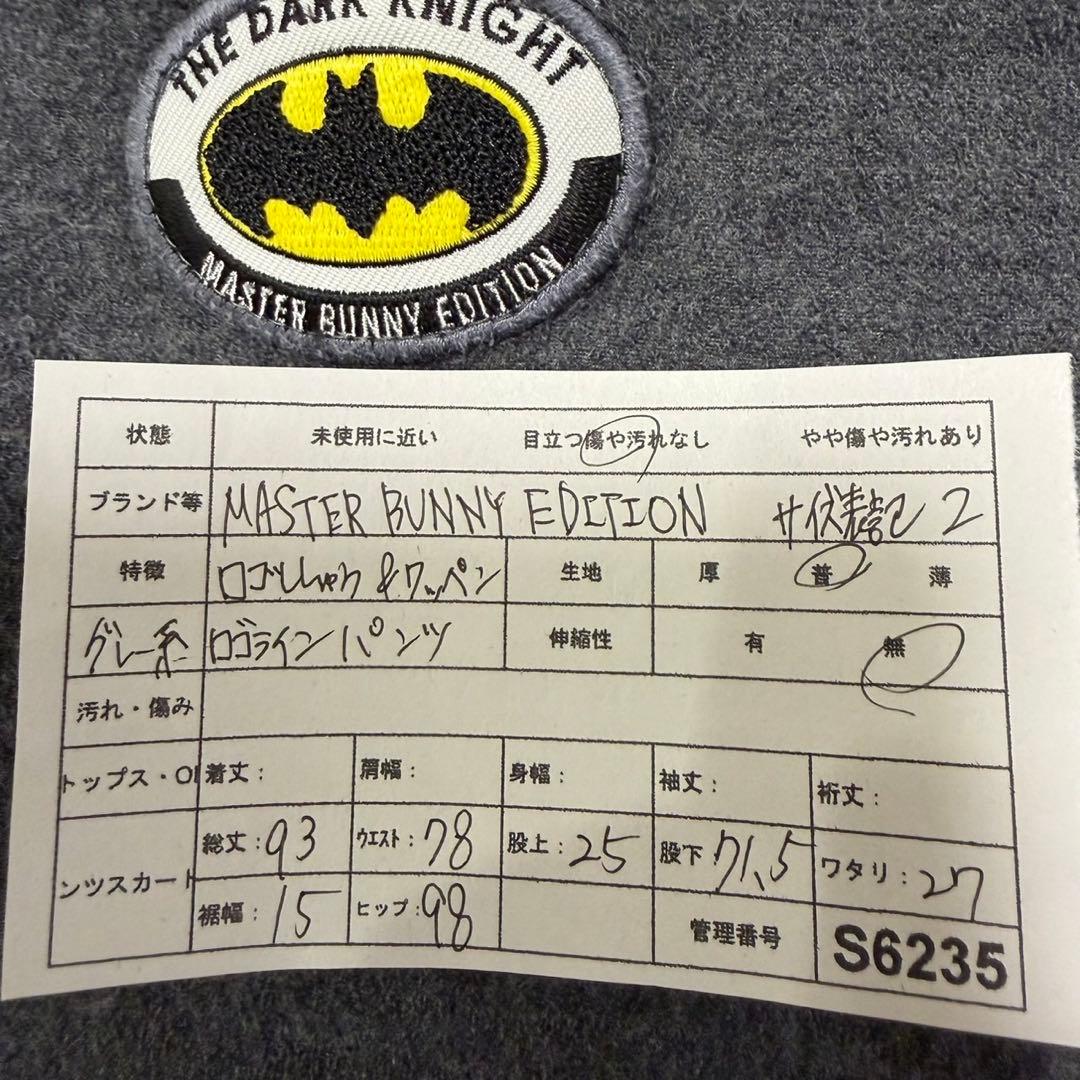 THE DARK KNIGHT
MASTER BUNNY EDITION
状態 未使用に近い 目立つ傷や汚れなし やや傷や汚れあり
ブランド等 MASTER BUNNY EDITION サイズ表記 2
特徴 ロゴししゅう&ワッペン 生地 厚 普 薄
グレー系 ロゴラインパンツ 伸縮性 有 無
汚れ・傷み
トップス・O 着丈: 肩幅: 身幅: 袖丈: 裄丈:
ンツスカート 総丈:93 ウエスト:78 股上:25 股下 71.5 ワタリ:27
裾幅:15 ヒップ:98 管理番号 S6235